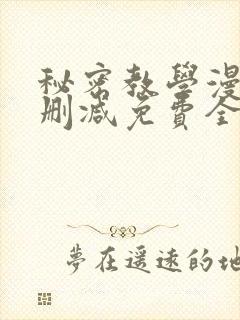 秘密教學漫
刪減免費全
夢在遥遠的地